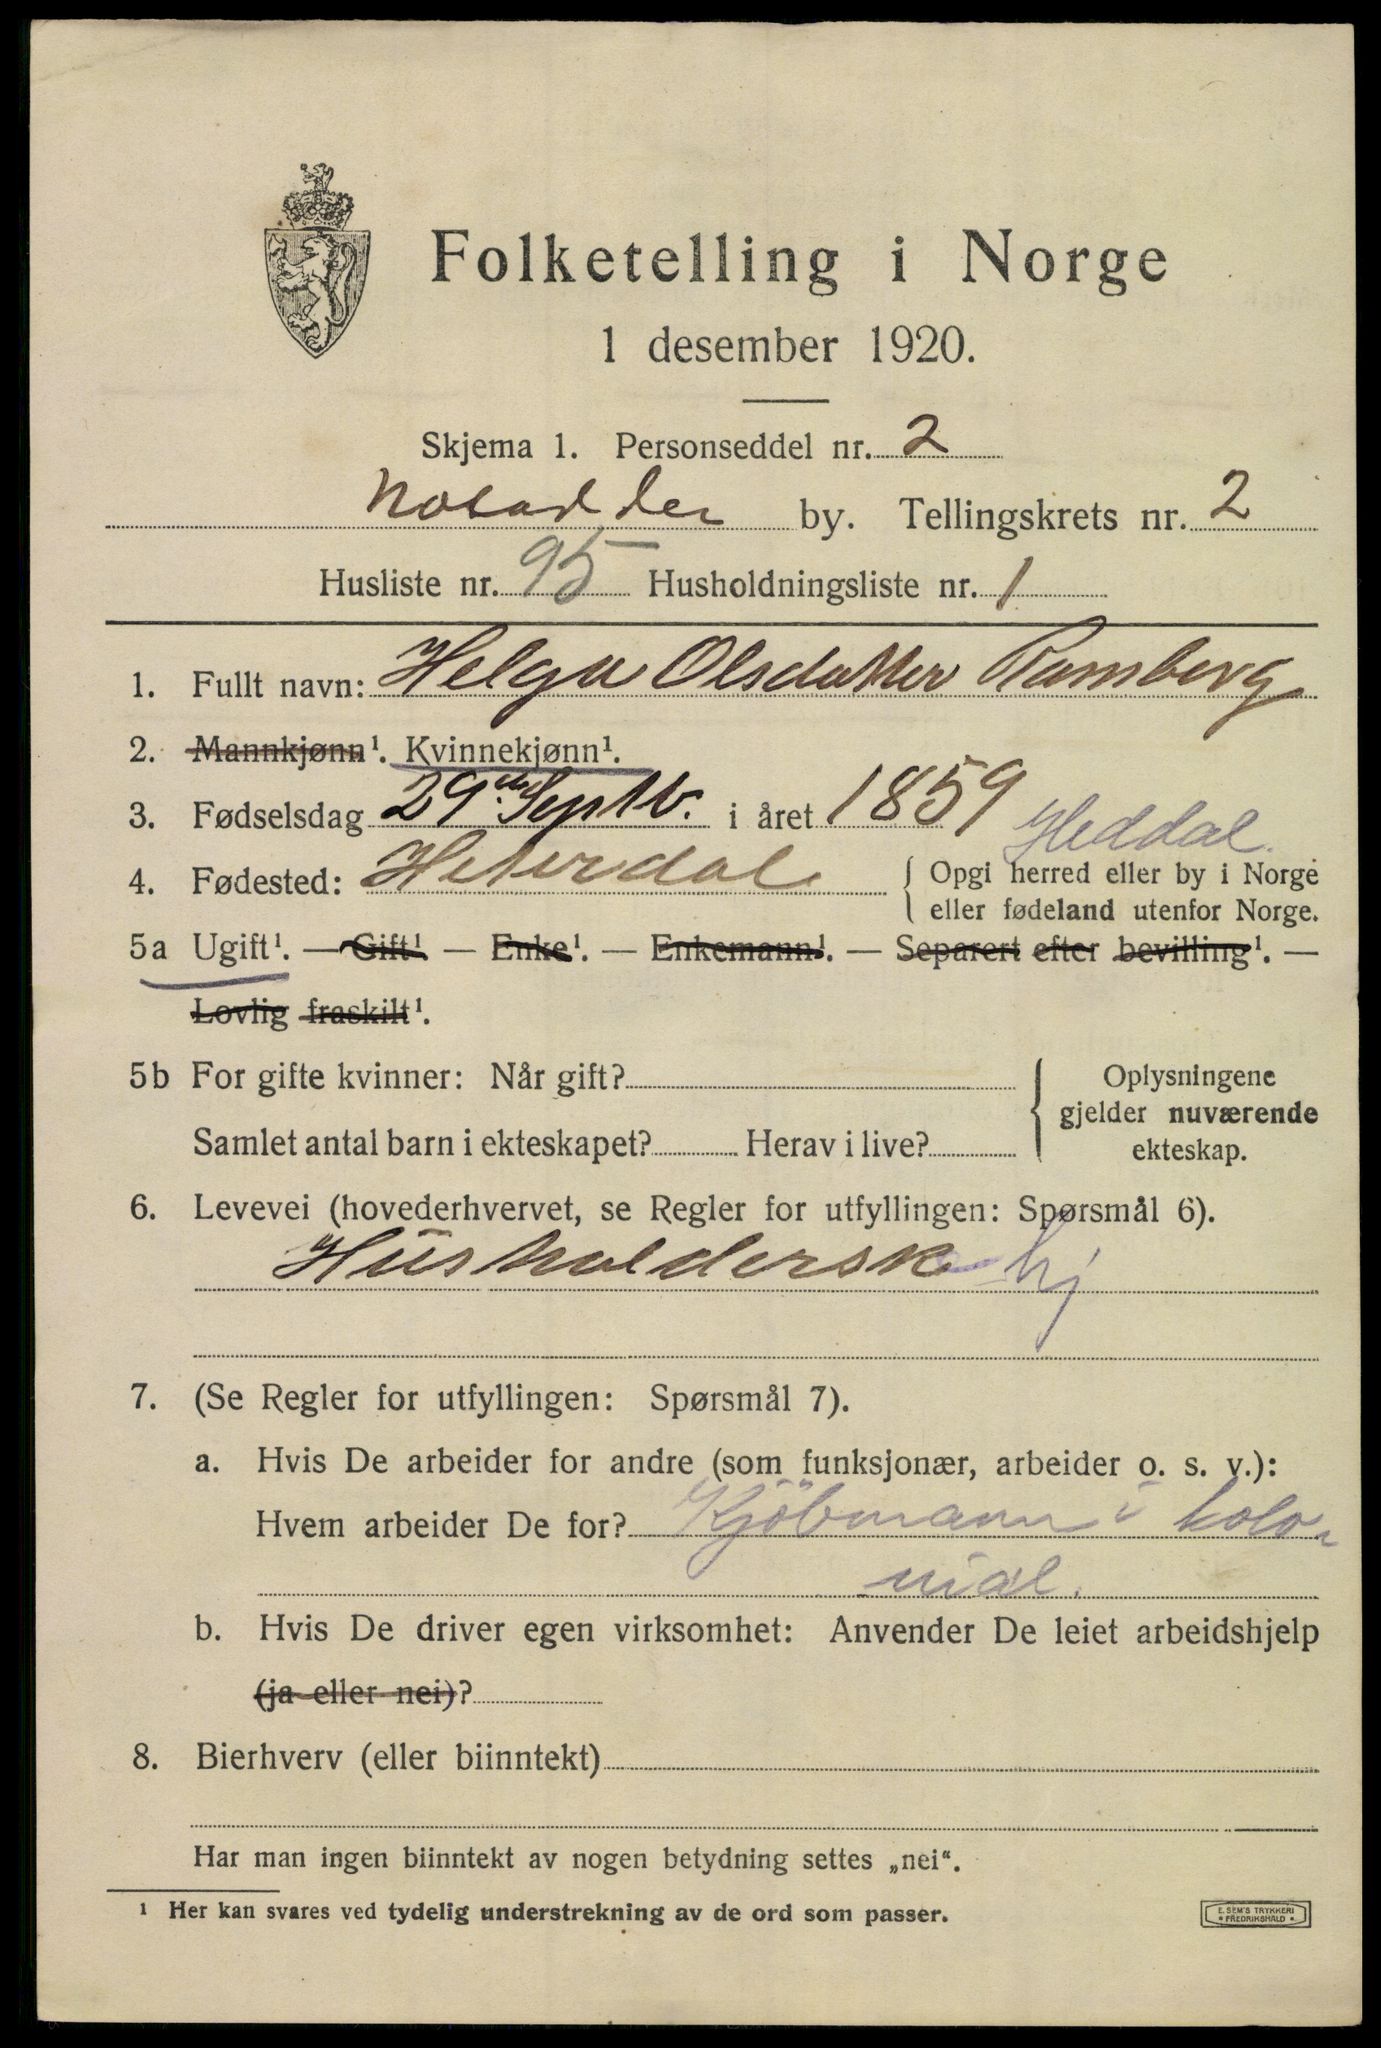 Folketelling i Norge
1 desember 1920.
Skjema 1. Personseddel nr. 2
Notodden by. Tellingskrets nr. 2
Husliste nr. 95 Husholdningsliste nr. 1
1. Fullt navn: Helga Olsdatter Ramberg
2. Mannkjønn¹. Kvinnekjønn¹.
3. Fødselsdag 29de Septb. i året 1859
Heddal.
4. Fødested: Hiterdal { Opgi herred eller by i Norge
eller fødeland utenfor Norge.
5a Ugift¹. — Gift¹ — Enke¹. — Enkemann¹. — Separert efter bevilling¹. —
Lovlig fraskilt¹.
5b For gifte kvinner: Når gift? { Oplysningene
gjelder nuværende
Samlet antal barn i ekteskapet? Herav i live? ekteskap.
6. Levevei (hovederhvervet, se Regler for utfyllingen: Spørsmål 6).
Husholderske hj
7. (Se Regler for utfyllingen: Spørsmål 7).
a. Hvis De arbeider for andre (som funksjonær, arbeider o. s. v.):
Hvem arbeider De for? Kjöbmann i kolo-
nial.
b. Hvis De driver egen virksomhet: Anvender De leiet arbeidshjelp
(ja eller nei)?
8. Bierhverv (eller biinntekt)
Har man ingen biinntekt av nogen betydning settes „nei“.
¹ Her kan svares ved tydelig understrekning av de ord som passer.
E. SEM'S TRYKKERI
* FREDRIKSHALD *